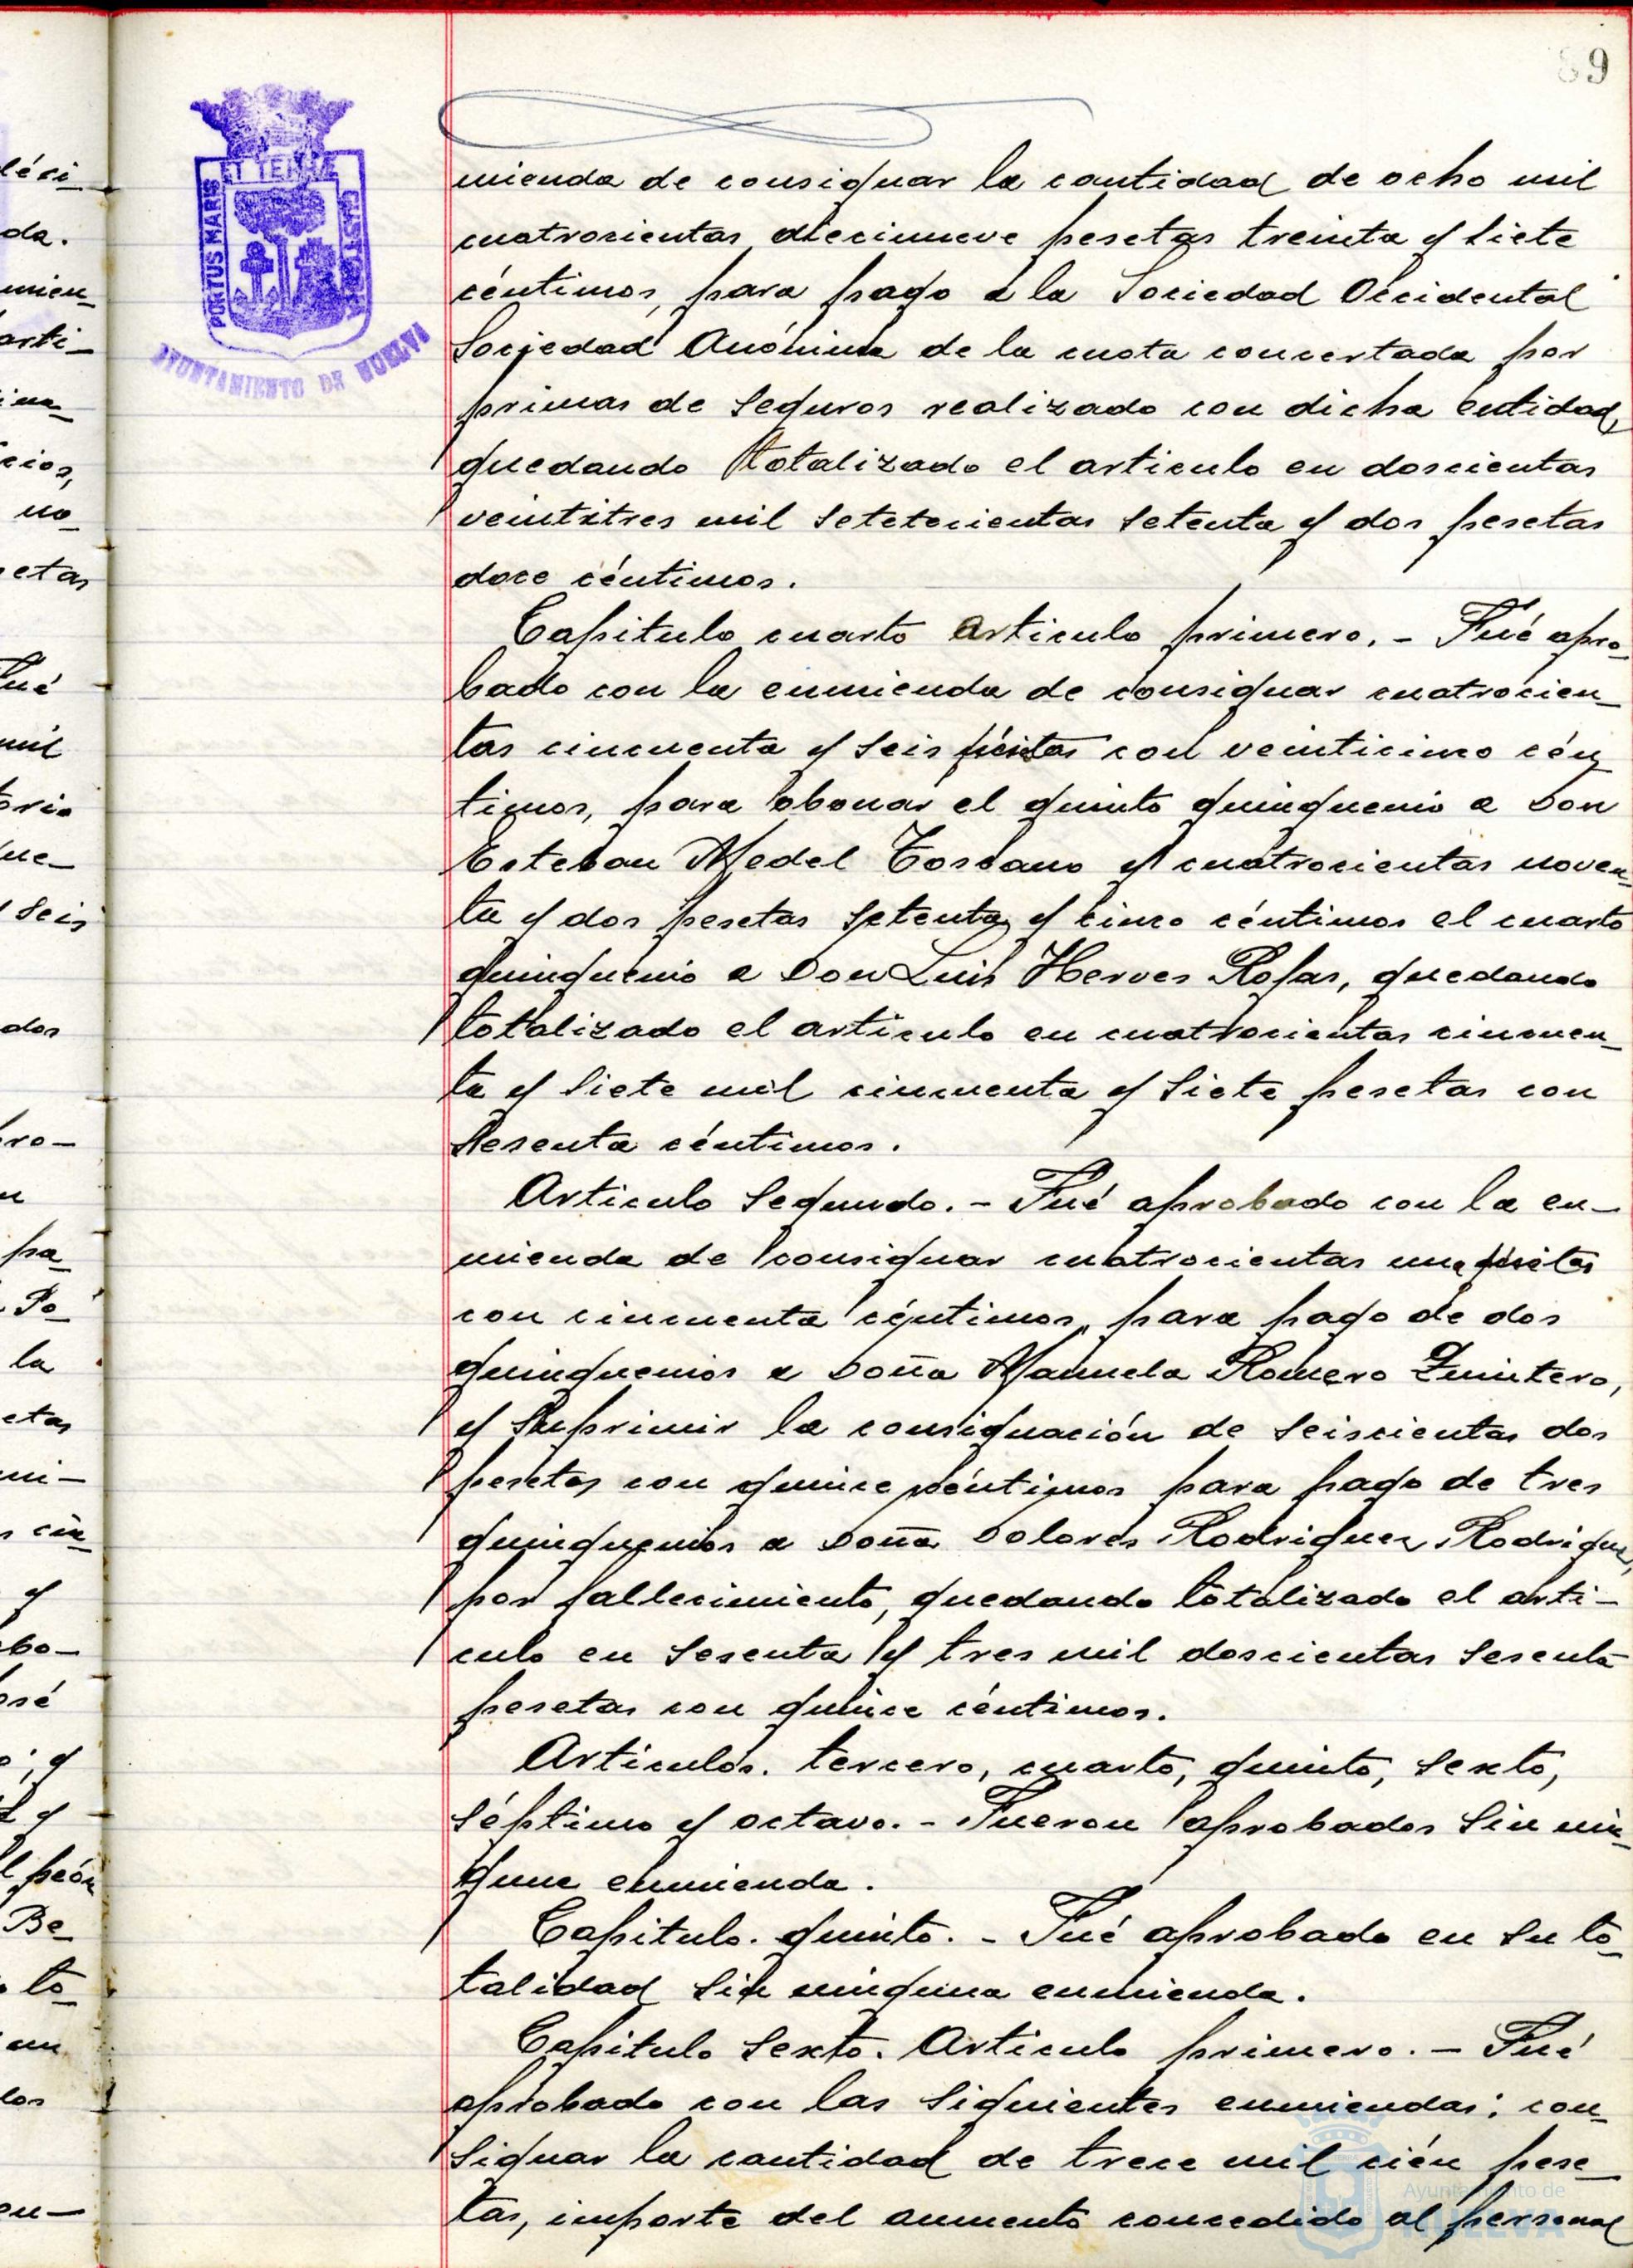 89
PORTUS MARIS
ET TERRÆ
CUSTODIA
AYUNTAMIENTO DE HUELVA
mienda de consignar la cantidad de ocho mil
cuatrocientas diecinueve pesetas treinta y siete
céntimos, para pago a la Sociedad Occidental
Sociedad Anónima de la cuota concertada por
primas de Seguros realizado con dicha entidad,
quedando totalizado el articulo en doscientas
veintitres mil setetecientas setenta y dos pesetas
doce céntimos.
Capitulo cuarto Articulo primero. - Fué apro-
bado con la enmienda de consignar cuatrocien-
tas cincuenta y seis pesetas con veinticinco cén-
timos, para abonar el quinto quinquenio a Don
Esteban Medel Toscano y cuatrocientas noven-
ta y dos pesetas setenta y cinco céntimos el cuarto
quinquenio a Don Luis Herves Rojas, quedando
totalizado el articulo en cuatrocientas cincuen-
ta y siete mil cincuenta y siete pesetas con
sesenta céntimos.
Articulo Segundo. - Fué aprobado con la en-
mienda de consignar cuatrocientas una pesetas
con cincuenta céntimos, para pago de dos
quinquenios a Doña Manuela Romero Quintero,
y suprimir la consignación de seiscientas dos
pesetas con quince céntimos para pago de tres
quinquenios a Doña Dolores Rodriguez Rodriguez,
por fallecimiento, quedando totalizado el arti-
culo en sesenta y tres mil doscientas sesenta
pesetas con quince céntimos.
Articulos. tercero, cuarto, quinto, sexto,
séptimo y octavo. - Fueron aprobados sin nin-
guna enmienda.
Capitulo. quinto. - Fué aprobado en su to-
talidad sin ninguna enmienda.
Capitulo Sexto. Articulo primero. - Fué
aprobado con las siguientes enmiendas; con-
signar la cantidad de trece mil cién pese-
tas, importe del aumento concedido al personal
Ayuntamiento de
HUELVA